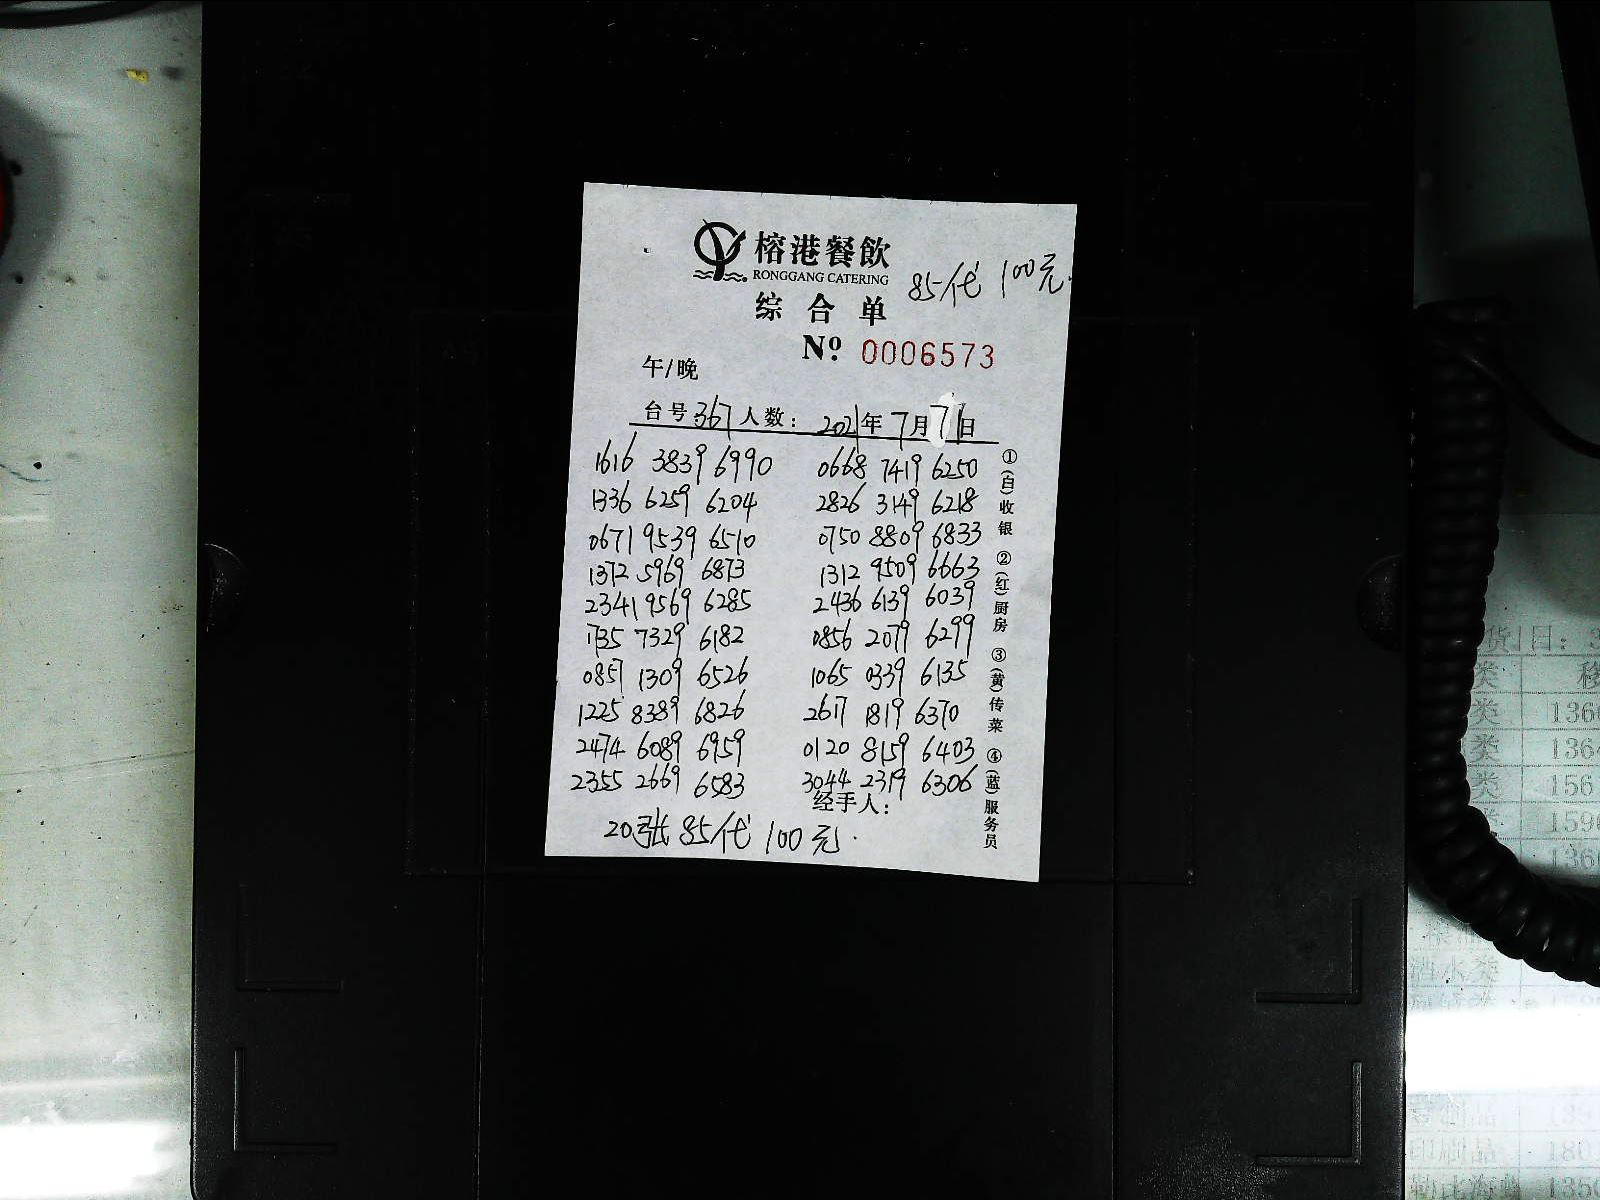 榕港餐飲
RONGGANG CATERING
85代100元
综合单
Nº 0006573
午/晚
台号367人数: 2021年7月71日
1616 3839 6990 0668 7419 6250
1336 6259 6204 2826 3149 6218
0671 9539 6510 0750 8809 6833
1372 5969 6873 1312 9509 6663
2341 9569 6285 2436 6139 6039
1735 7329 6182 0856 2079 6299
0857 1309 6526 1065 0339 6135
1225 8389 6826 2617 1819 6370
2474 6089 6959 0120 8159 6403
2355 2669 6583 3044 2319 6306
经手人:
20张 85代100元.
①(白)收银 ②(红)厨房 ③(黄)传菜 ④(蓝)服务员
货 日: 3
类
类 136
类 1364
类 156
159
136
酒水类
180